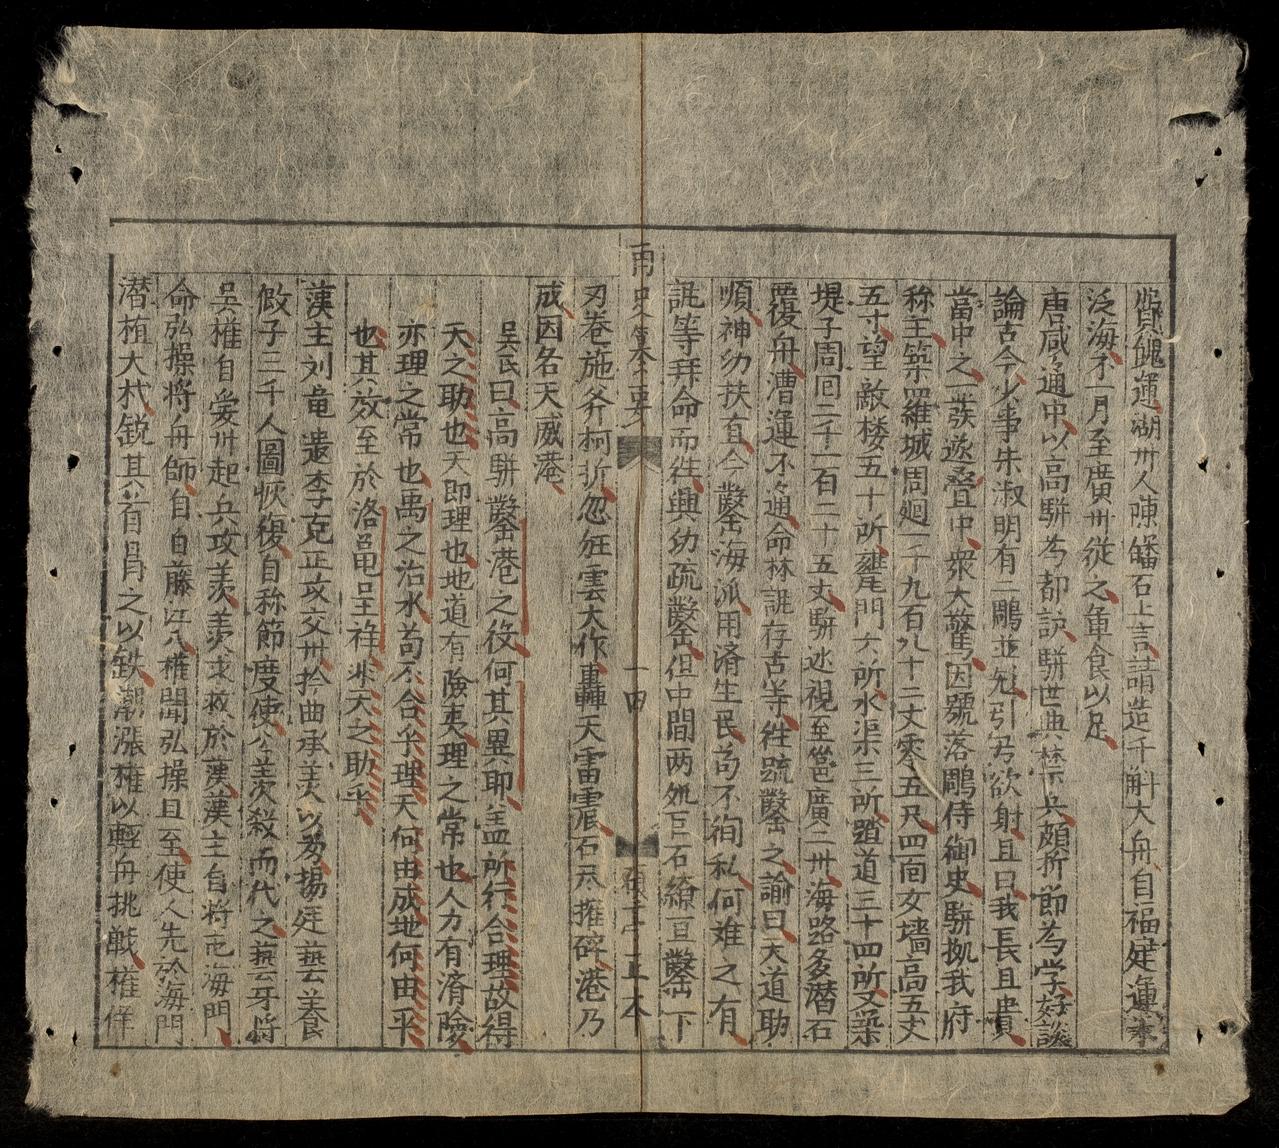 餽運湖州人陳磻石上言請造千斛大舟自福建運米
泛海不一月至廣州從之軍食以足
唐咸通中以高駢為都護駢世典禁兵頗折節為学好談
論古今少事朱淑明有二鵰並飛引弓欲射且曰我長且貴
當中之一發遂疊中衆大驚因號落鵰侍御史駢拠我府
称王築羅城周廻一千九百八十二丈零五尺四面女墙高五丈
五寸望敵楼五十所甕門六所水渠三所踏道三十四所又築
堤子周回二千一百二十五丈駢巡視至邕廣二州海路多潜石
覆舟漕運不通命林諷存古等往疏鑿之諭曰天道助
順神力扶直今鑿海派用済生民苟不徇私何难之有
諷等拜命而往興功疏鑿但中間两処巨石繚亘鑿下
刃巻施斧柯折忽狂雲大作轟天雷震石尽摧碎港乃
成因名天威港
吳氏曰高駢鑿港之役何其異耶盖所行合理故得
天之助也天即理也地道有險夷理之常也人力有済險
亦理之常也禹之治水苟不合乎理天何由成地何由平
也其效至於洛邑呈祥非天之助乎
漢主刘龑遣李克正攻交州擒曲承美以男揚廷藝養
假子三千人圖恢復自称節度使公羡殺而代之藝牙将
吳權自愛州起兵攻羡羡求救於漢漢主自将屯海門
命弘操将舟師自白藤江入權聞弘操且至使人先於海門
潜植大杙銳其首冐之以鉄潮漲權以輕舟挑戦權佯
甬史集要